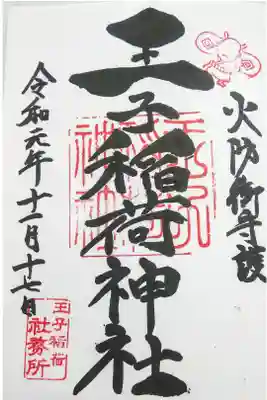 火防御守護
王子稲荷神社
令和元年十一月十七日
王子稲荷
社務所